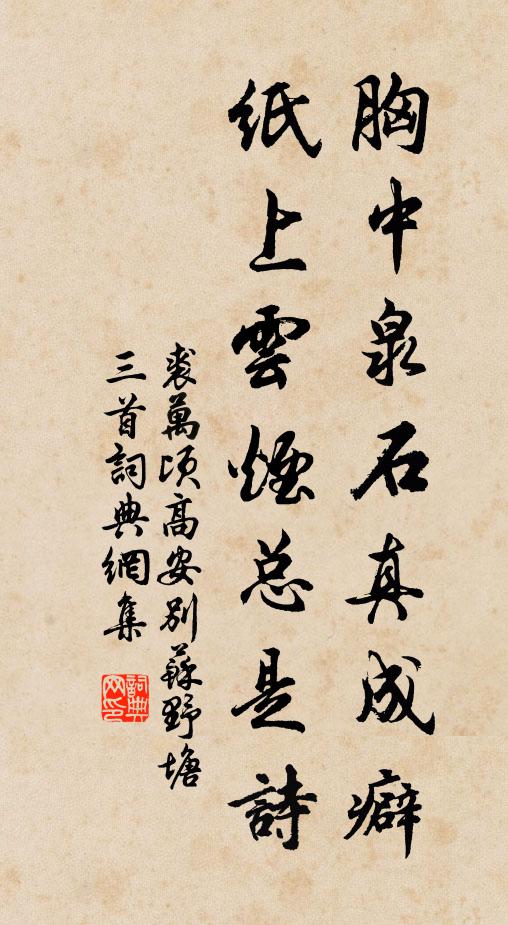 胸中泉石真成癖
紙上雲煙总是詩
裘萬頃高安別蘇野塘
三首詞典網集
詞典
网印